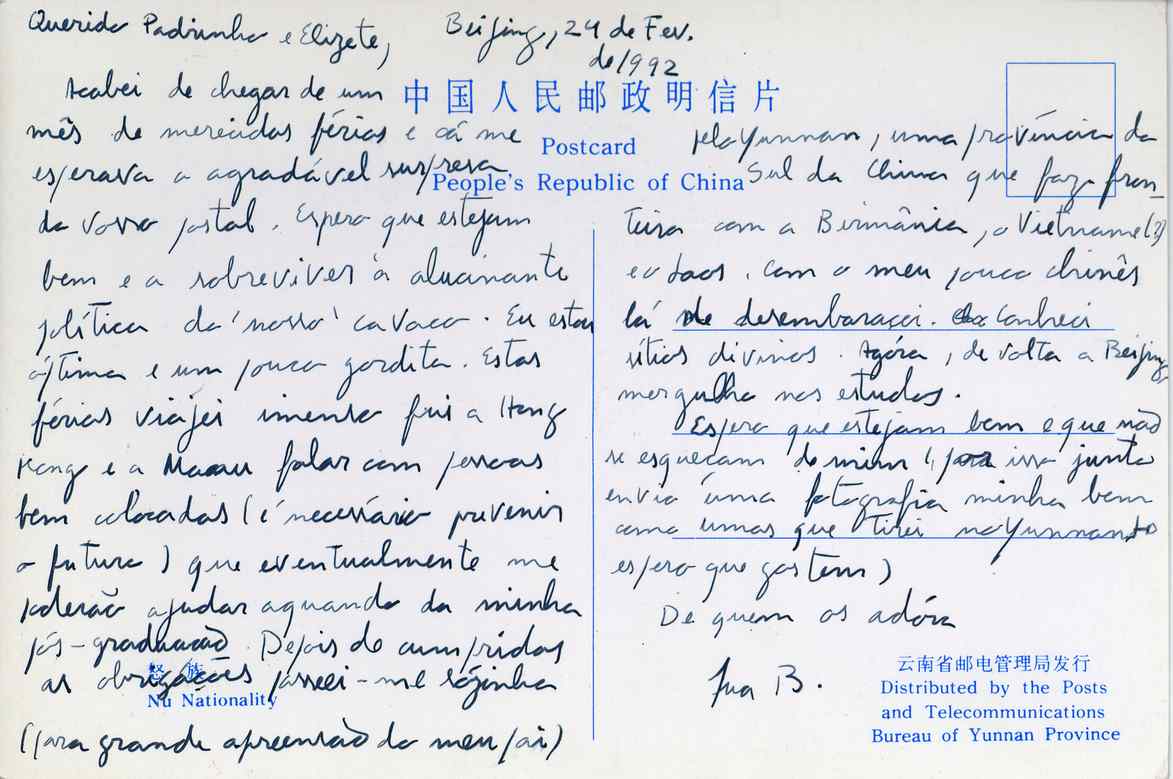 Querido Padrinho e Elizete,
Beijing, 24 de Fev.
de 1992
Acabei de chegar de um
mês de merecidas férias e cá me
esperava a agradável surpresa
do vosso postal. Espero que estejam
bem e a sobreviver à alucinante
política do 'nosso' cavaco. Eu estou
óptima e um pouco gordita. Estas
férias viajei imenso fui a Hong
Kong e a Macau falar com pessoas
bem colocadas (é necessário prevenir
o futuro) que eventualmente me
poderão ajudar aquando da minha
pós-graduação. Depois de cumpridas
as obrigações passei-me sózinha
(para grande apreensão do meu pai)
中国人民邮政明信片
Postcard
People's Republic of China
pelo Yunnan, uma província do
Sul da China que faz fron-
teira com a Birmânia, o Vietname(?)
e o Laos. Com o meu pouco chinês
lá me desembaracei. Conheci
sítios divinos. Agóra, de volta a Beijing,
mergulho nos estudos.
Espero que estejam bem e que não
se esqueçam de mim (, para isso junto
envio uma fotografia minha bem
como umas que tirei no Yunnan
espero que gostem)
De quem os adóra
B.
怒族
Nu Nationality
云南省邮电管理局发行
Distributed by the Posts
and Telecommunications
Bureau of Yunnan Province